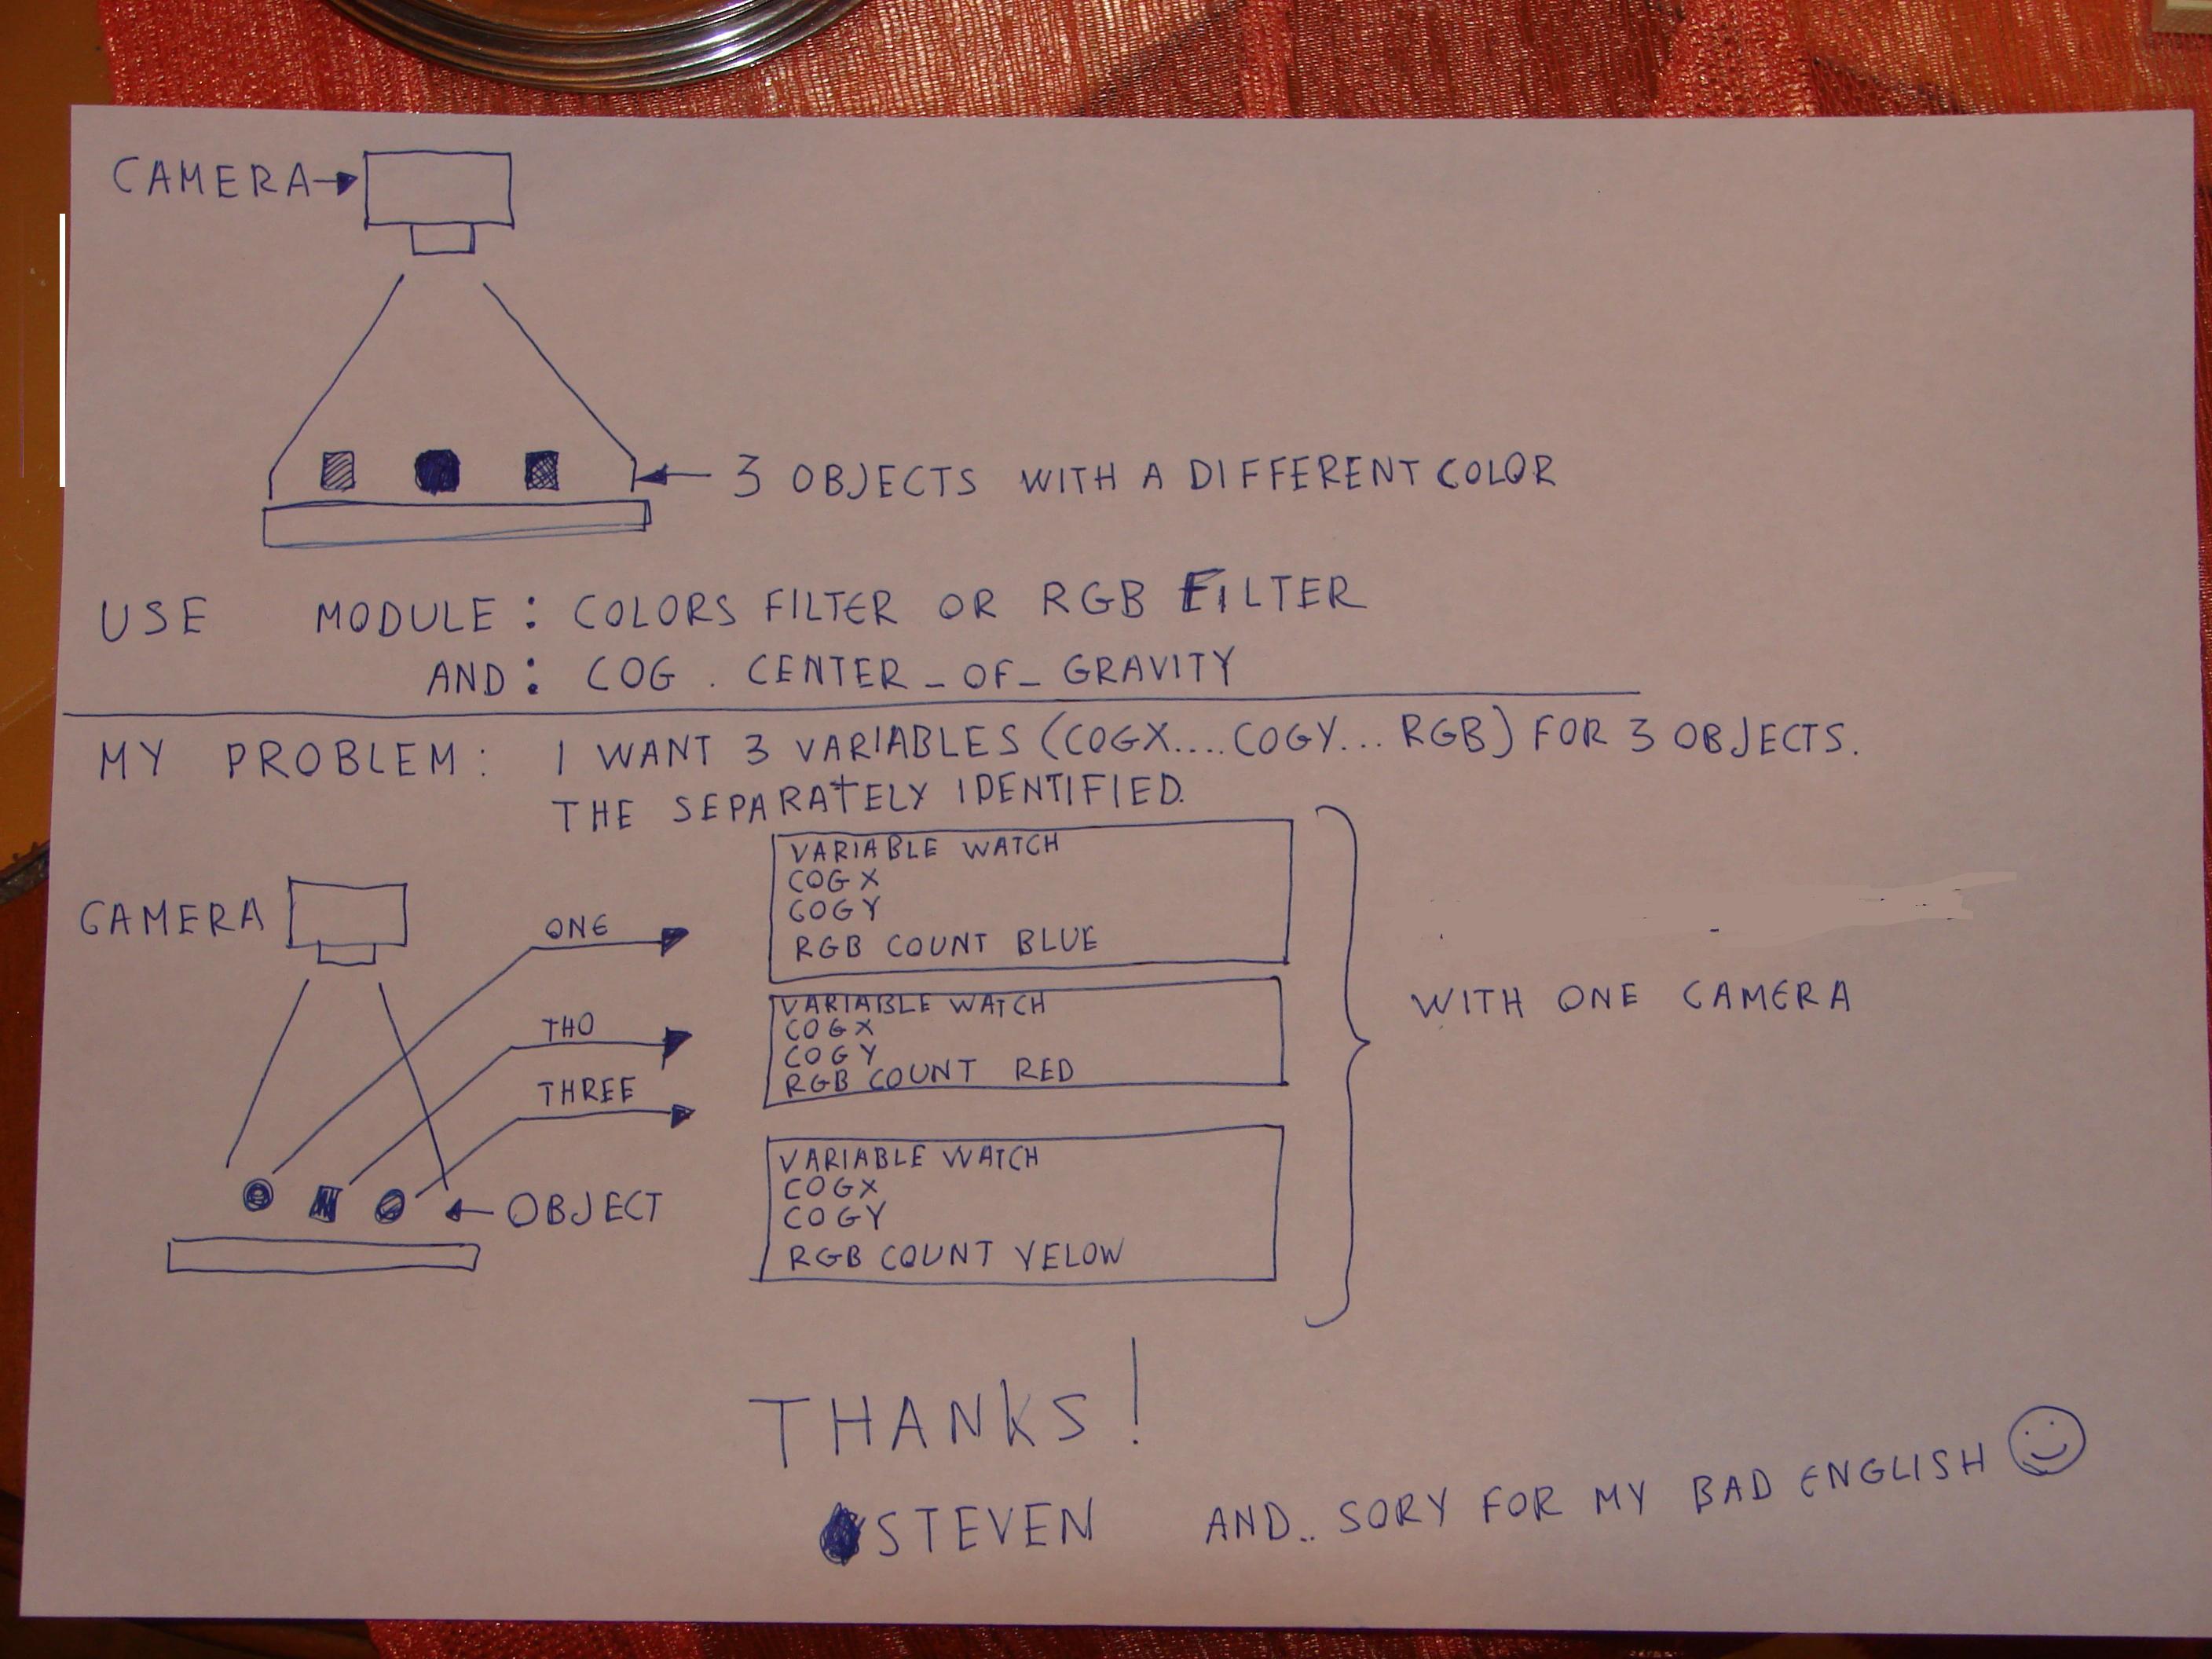 CAMERA
3 OBJECTS WITH A DIFFERENT COLOR
USE MODULE: COLORS FILTER OR RGB FILTER
AND: COG. CENTER_OF_GRAVITY
MY PROBLEM: I WANT 3 VARIABLES (COGX....COGY... RGB) FOR 3 OBJECTS.
THE SEPARATELY IDENTIFIED.
CAMERA
ONE
THO
THREE
OBJECT
VARIABLE WATCH
COGX
COGY
RGB COUNT BLUE
VARIABLE WATCH
COGX
COGY
RGB COUNT RED
VARIABLE WATCH
COGX
COGY
RGB COUNT YELOW
WITH ONE CAMERA
THANKS!
STEVEN AND.. SORY FOR MY BAD ENGLISH